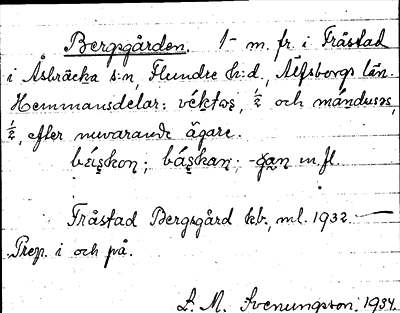 Bergsgården. 1- m. fr. i Fråstad
i Åsbräcka s:n, Flundre h:d, Älfsborgs län.
Hemmansdelar: 1/2 och
1/2, efter nuvarande ägare.
m. fl.
Fråstad Bergsgård kb., ml. 1932.
Prep. i och på.
L. M. Svenungsson. 1934.